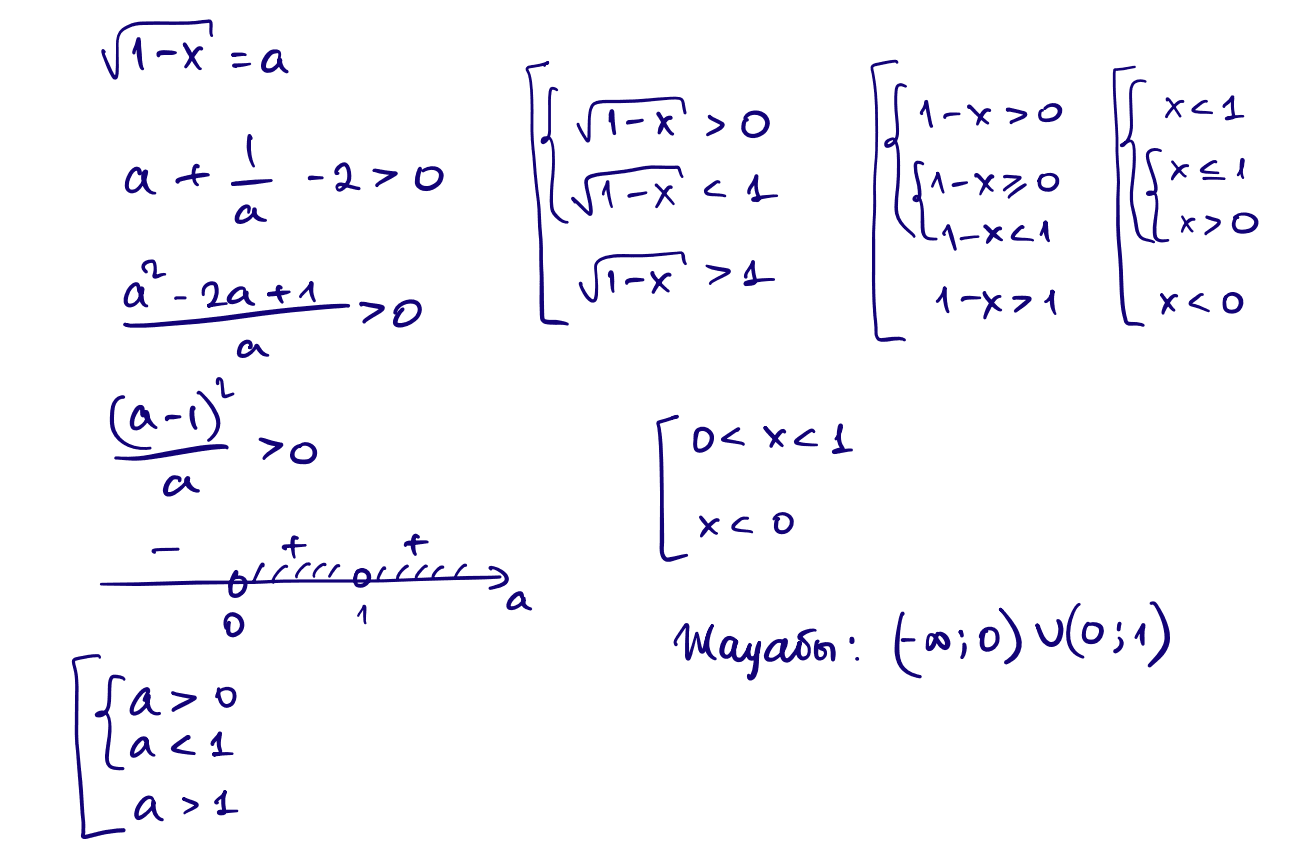 √(1-x) = a
a + 1/a - 2 > 0
(a² - 2a + 1)/a > 0
(a-1)²/a > 0
- + +
0 1 a
[ { a > 0
a < 1
a > 1
[ { √(1-x) > 0
√(1-x) < 1
√(1-x) > 1
[ { 1-x > 0
{ 1-x ⩾ 0
1-x < 1
1-x > 1
[ { x < 1
{ x ≤ 1
x > 0
x < 0
[ 0 < x < 1
x < 0
Жауабы: (-∞; 0) ∪ (0; 1)